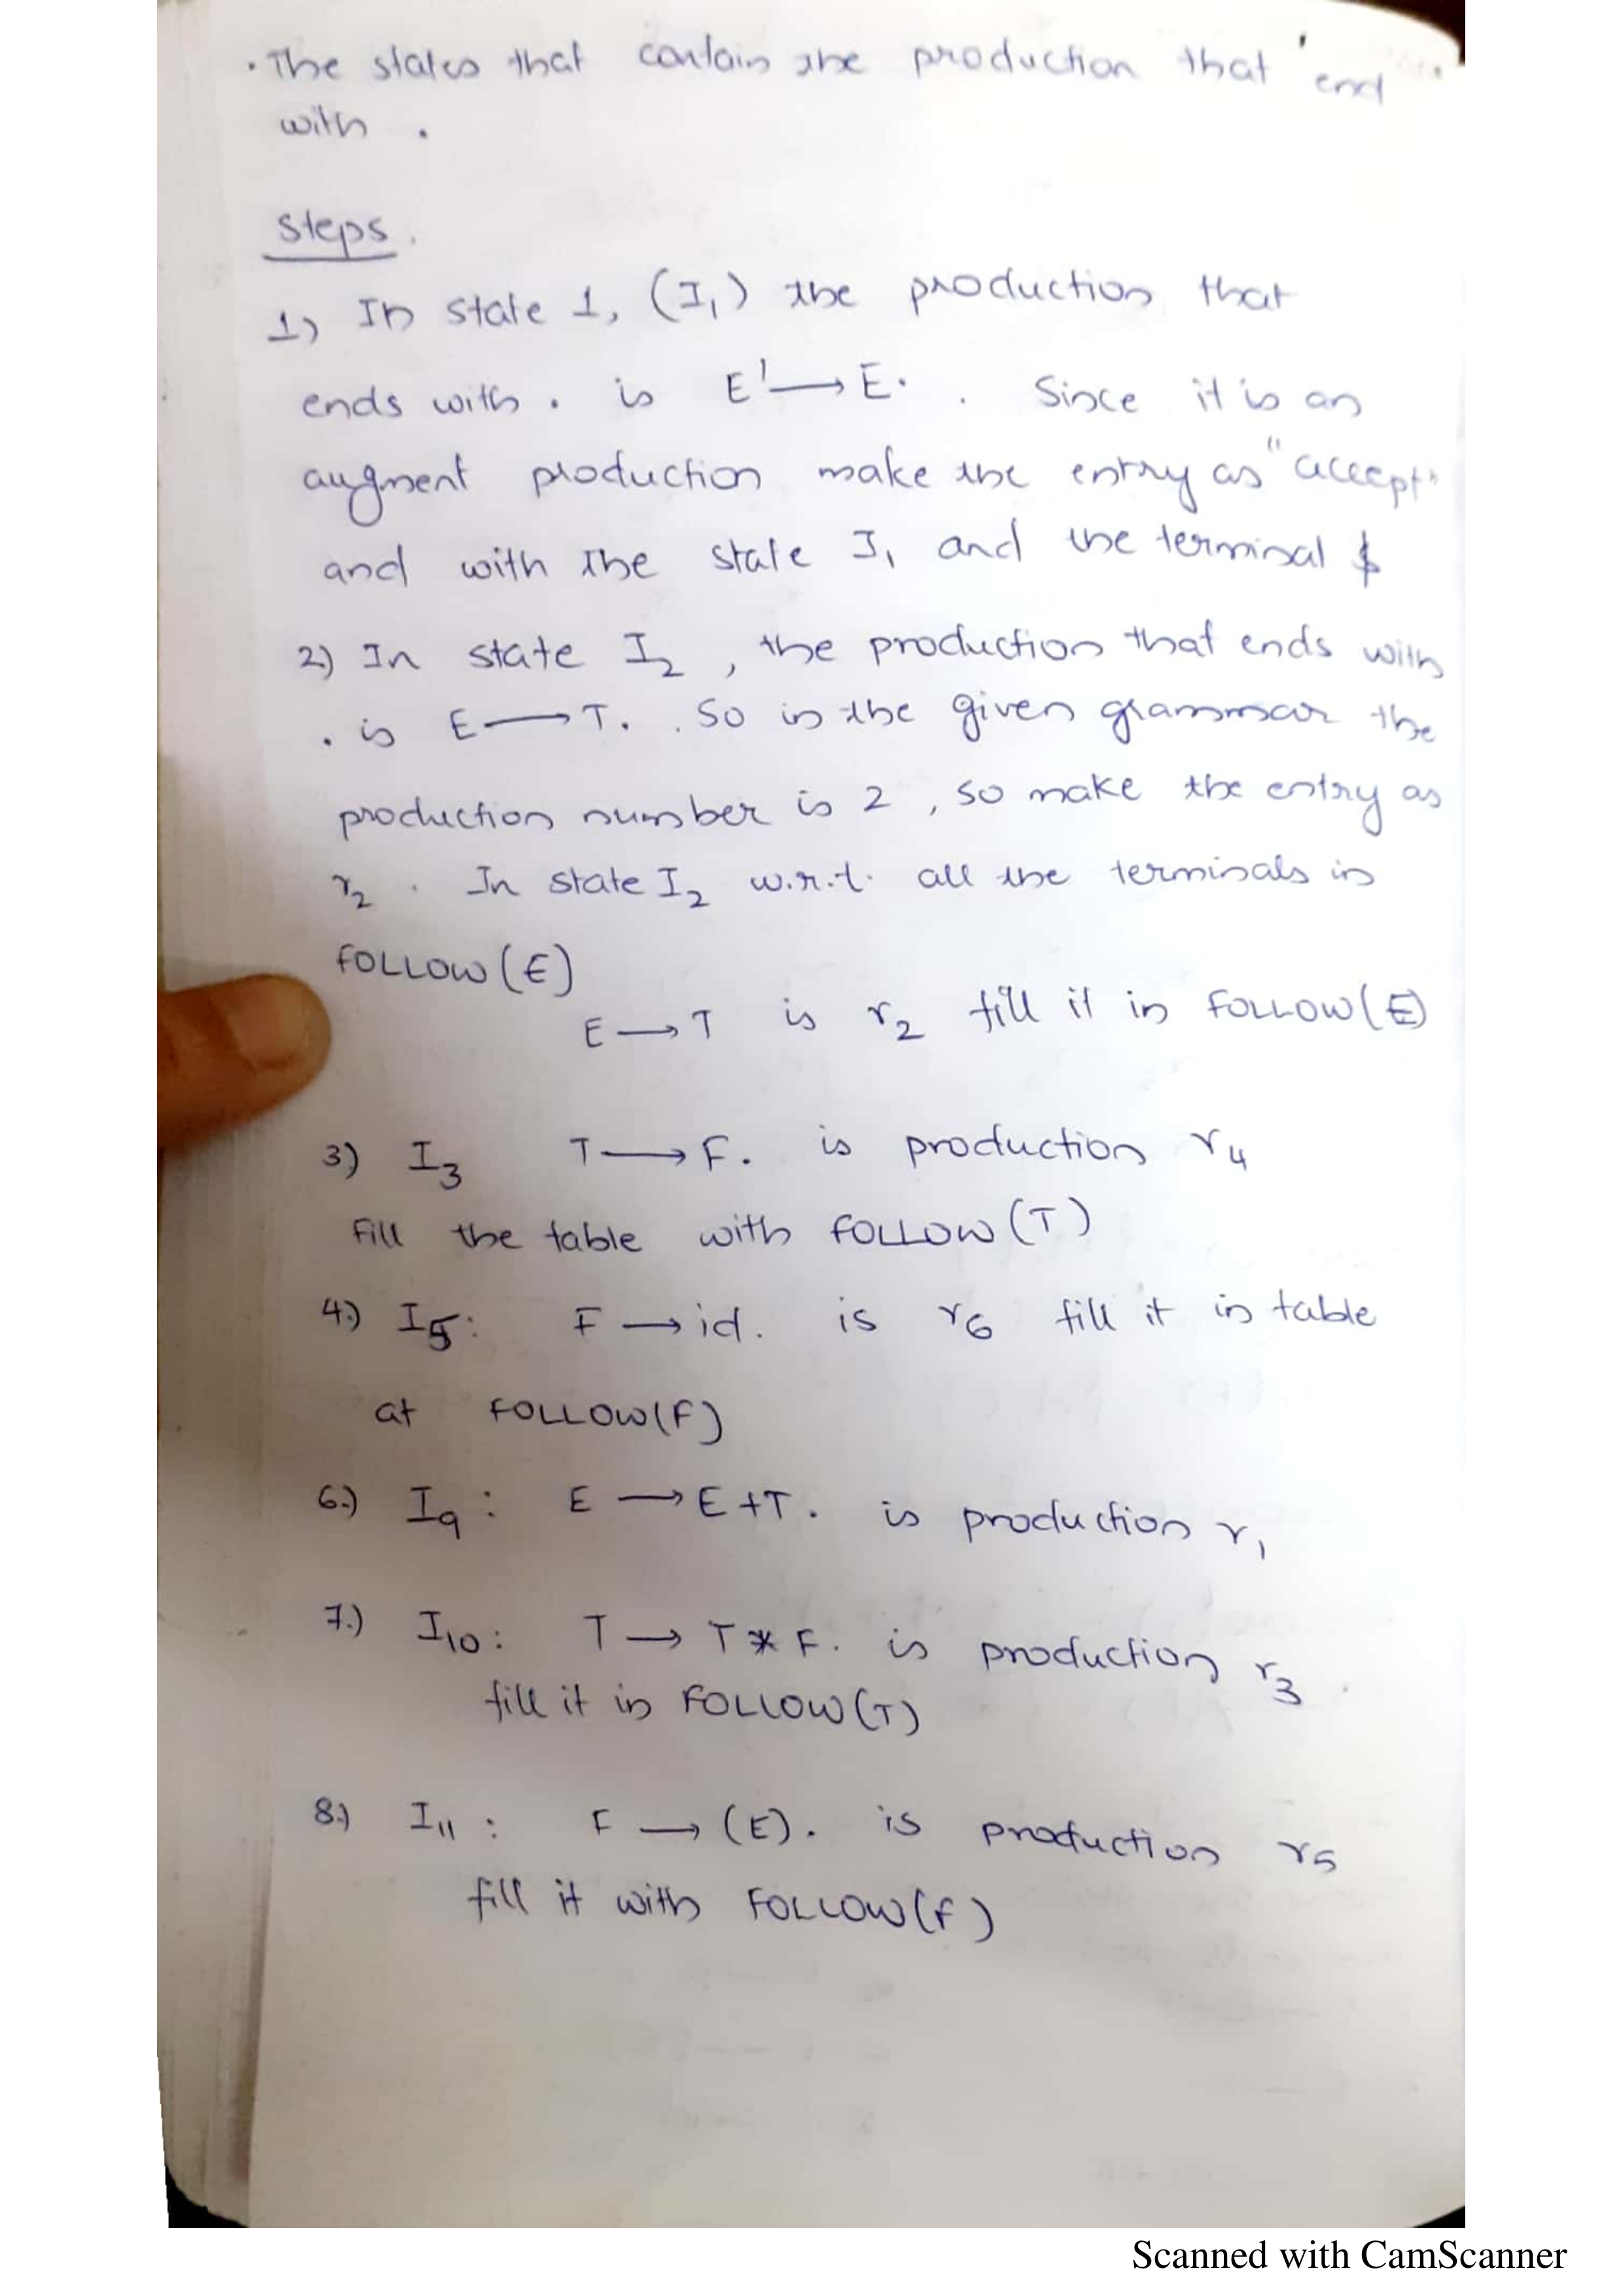 · The states that contain the production that end
with .
Steps.
1) In state 1, (I₁) the production that
ends with . is E' → E. . Since it is an
augment production make the entry as "accept"
and with the state I₁ and the terminal $
2) In state I₂ , the production that ends with
. is E → T. . So in the given grammar the
production number is 2 , so make the entry as
r₂ . In state I₂ w.r.t. all the terminals in
FOLLOW(E)
E → T is r₂ fill it in FOLLOW(E)
3) I₃ T → F. is production r₄
Fill the table with FOLLOW(T)
4.) I₅: F → id. is r₆ fill it in table
at FOLLOW(F)
6.) I₉: E → E+T. is production r₁
7.) I₁₀: T → T * F. is production r₃.
fill it in FOLLOW(T)
8.) I₁₁: F → (E). is production r₅
fill it with FOLLOW(F)
Scanned with CamScanner